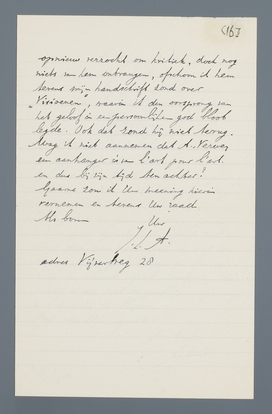 opnieuw verzocht om kritiek, doch nog
niets van hem ontvangen, ofschoon ik hem
tevens mijn handschrift zond over
", waarin ik den oorsprong van
het geloof in een persoonlijken god bloot
legde. Ook dat zond hij niet terug.
Mag ik niet aannemen dat A. Verwey
een aanhanger is van l'art pour l'art
en dus bij zijn tijd ten achter?
Gaarne zou ik Uw meening hierin
vernemen en tevens Uw raad.
Uw
adres Vijverweg 28